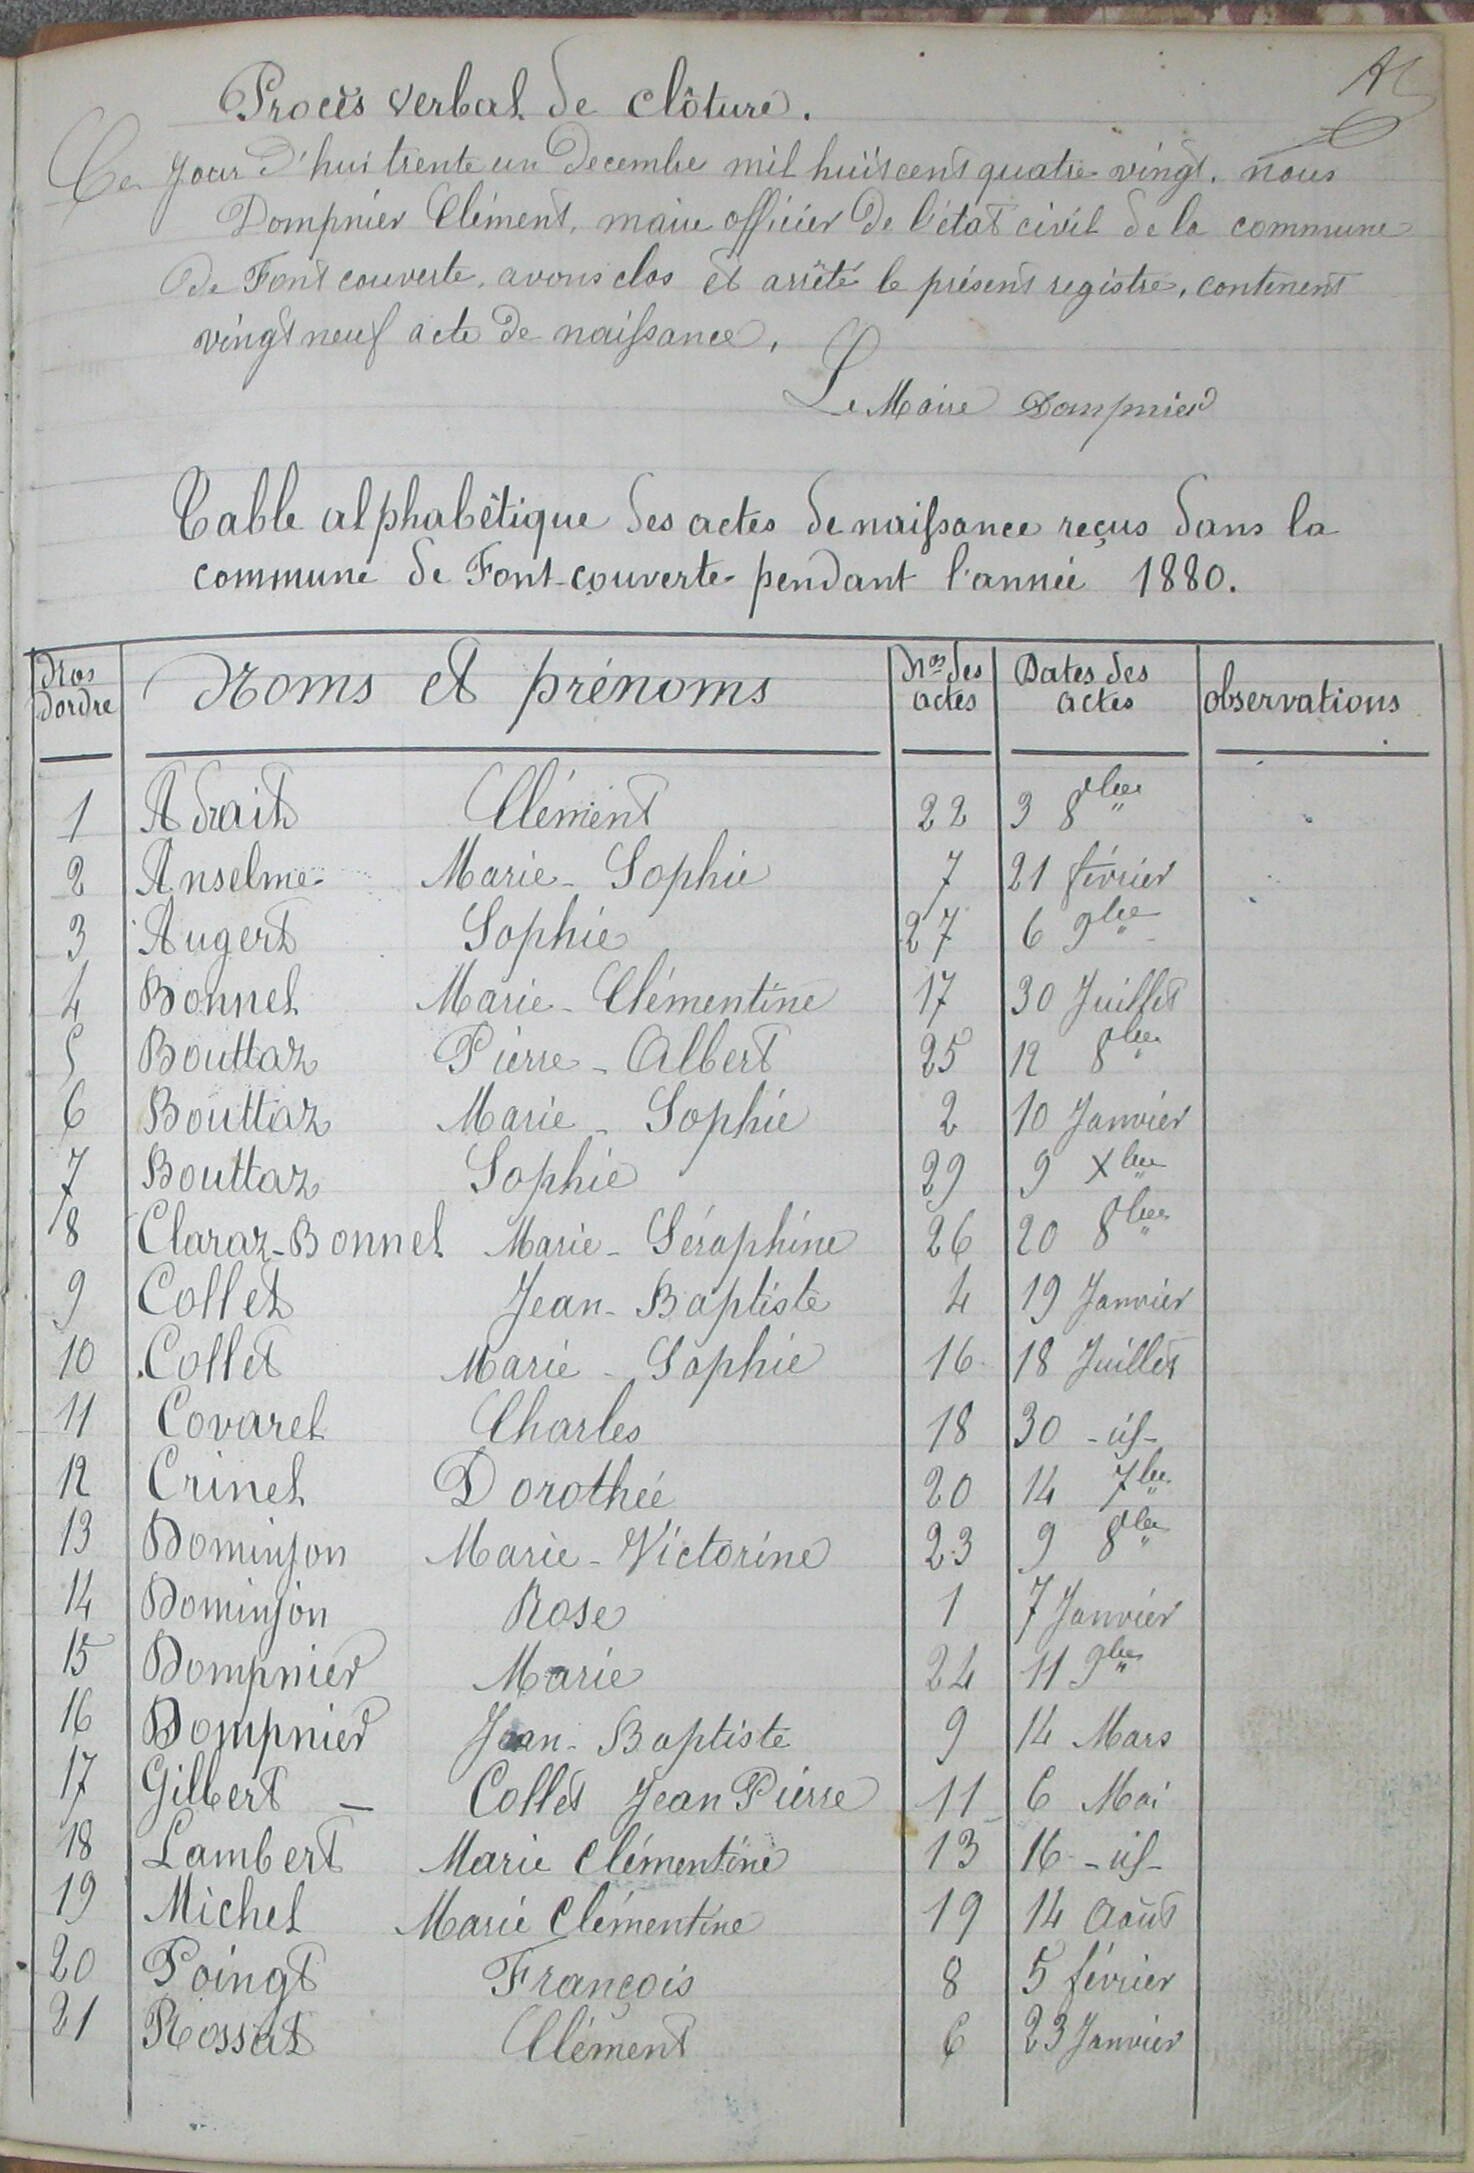 Procès verbal de clôture.
Ce jour d'hui trente un Decembre mil huit cent quatre vingt, nous
Dompnier Clément, maire officier de l'état civil de la commune
de Font couverte, avons clos et arrêté le présent registre, contenent
vingt neuf acte de naissance,
Le Maire Dompnier
Table alphabêtique des actes de naissance reçus dans la
commune de Font-couverte pendant l'année 1880.
Nos d'ordre Noms et prénoms Nos des actes Dates des actes observations
1 Adrait Clément 22 3 8bre
2 Anselme Marie-Sophie 7 21 février
3 Augert Sophie 27 6 9bre
4 Bonnel Marie-Clémentine 17 30 Juillet
5 Bouttaz Pierre-Albert 25 12 8bre
6 Bouttaz Marie-Sophie 2 10 Janvier
7 Bouttaz Sophie 29 9 Xbre
8 Claraz-Bonnel Marie-Séraphine 26 20 8bre
9 Collet Jean-Baptiste 4 19 Janvier
10 Collet Marie-Sophie 16 18 Juillet
11 Covarel Charles 18 30 -id-
12 Crinel Dorothée 20 14 7bre
13 Dominjon Marie-Victorine 23 9 8bre
14 Dominjon Rose 1 7 Janvier
15 Dompnier Marie 24 11 9bre
16 Dompnier Jean-Baptiste 9 14 Mars
17 Gilbert - Collet Jean Pierre 11 6 Mai
18 Lambert Marie Clémentine 13 16 -id-
19 Michel Marie Clémentine 19 14 Août
20 Poingt François 8 5 février
21 Rossat Clément 6 23 Janvier